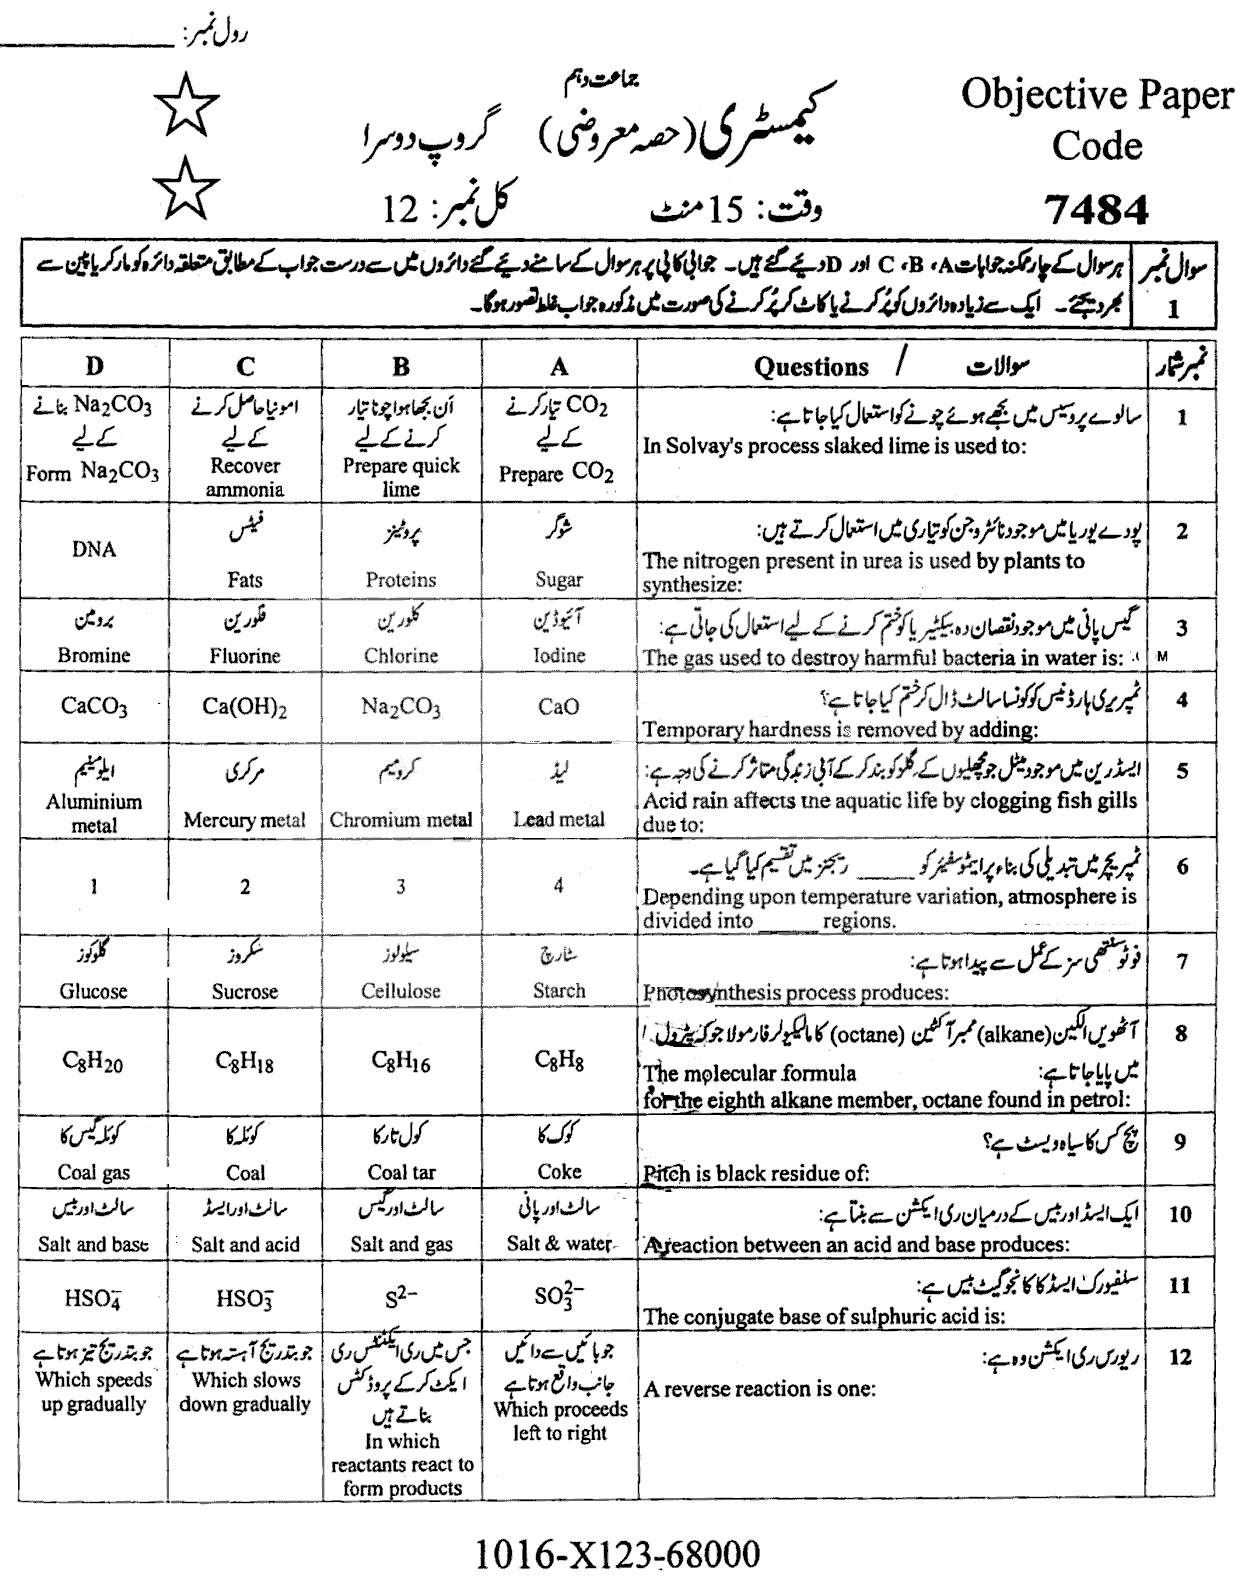 رول نمبر: ____________
جماعت دہم
Objective Paper
Code
7484
کیمسٹری (حصہ معروضی) گروپ دوسرا
وقت: 15 منٹ کل نمبر: 12
سوال نمبر 1
ہر سوال کے چار ممکنہ جوابات A، B، C اور D دیے گئے ہیں۔ جوابی کاپی پر ہر سوال کے سامنے دیے گئے دائروں میں سے درست جواب کے مطابق متعلقہ دائرہ کو مارکر یا پین سے
بھر دیجئے۔ ایک سے زیادہ دائروں کو پُر کرنے یا کاٹ کر پُر کرنے کی صورت میں مذکورہ جواب غلط تصور ہوگا۔
نمبر شمار سوالات / Questions A B C D
1 سالوے پروسیس میں بجھے ہوئے چونے کو استعمال کیا جاتا ہے:
In Solvay's process slaked lime is used to:
CO₂ تیار کرنے کے لیے
Prepare CO₂
اَن بجھا ہوا چونا تیار کرنے کے لیے
Prepare quick lime
امونیا حاصل کرنے کے لیے
Recover ammonia
Na₂CO₃ بنانے کے لیے
Form Na₂CO₃
2 پودے یوریا میں موجود نائٹروجن کو تیاری میں استعمال کرتے ہیں:
The nitrogen present in urea is used by plants to
synthesize:
شوگر
Sugar
پروٹینز
Proteins
فیٹس
Fats
DNA
3 گیس پانی میں موجود نقصان دہ بیکٹیریا کو ختم کرنے کے لیے استعمال کی جاتی ہے:
The gas used to destroy harmful bacteria in water is:
M
آئیوڈین
Iodine
کلورین
Chlorine
فلورین
Fluorine
برومین
Bromine
4 ٹمپریری ہارڈنیس کو کونسا سالٹ ڈال کر ختم کیا جاتا ہے؟
Temporary hardness is removed by adding:
CaO
Na₂CO₃
Ca(OH)₂
CaCO₃
5 ایسڈ رین میں موجود میٹل جو مچھلیوں کے گلز کو بند کر کے آبی زندگی متاثر کرنے کی وجہ ہے:
Acid rain affects the aquatic life by clogging fish gills
due to:
لیڈ
Lead metal
کرومیم
Chromium metal
مرکری
Mercury metal
ایلومینیم
Aluminium metal
6 ٹمپریچر میں تبدیلی کی بناء پر ایٹموسفیئر کو _____ ریجنز میں تقسیم کیا گیا ہے۔
Depending upon temperature variation, atmosphere is
divided into _____ regions.
4
3
2
1
7 فوٹوسنتھی سز کے عمل سے پیدا ہوتا ہے:
Photosynthesis process produces:
سٹارچ
Starch
سیلولوز
Cellulose
سکروز
Sucrose
گلوکوز
Glucose
8 آٹھویں الکین (alkane) ممبر آکٹین (octane) کا مالیکیولر فارمولا جو کہ پیٹرول
میں پایا جاتا ہے:
The molecular formula
for the eighth alkane member, octane found in petrol:
C₈H₈
C₈H₁₆
C₈H₁₈
C₈H₂₀
9 پچ کس کا سیاہ ویسٹ ہے؟
Pitch is black residue of:
کوک کا
Coke
کول تار کا
Coal tar
کوئلہ کا
Coal
کوئلہ گیس کا
Coal gas
10 ایک ایسڈ اور بیس کے درمیان ری ایکشن سے بنتا ہے:
A reaction between an acid and base produces:
سالٹ اور پانی
Salt & water
سالٹ اور گیس
Salt and gas
سالٹ اور ایسڈ
Salt and acid
سالٹ اور بیس
Salt and base
11 سلفیورک ایسڈ کا کانجوگیٹ بیس ہے:
The conjugate base of sulphuric acid is:
SO₃²⁻
S²⁻
HSO₃⁻
HSO₄⁻
12 ریورس ری ایکشن وہ ہے:
A reverse reaction is one:
جو بائیں سے دائیں
جانب واقع ہوتا ہے
Which proceeds
left to right
جس میں ری ایکٹنٹس ری
ایکٹ کر کے پروڈکٹس
بناتے ہیں
In which
reactants react to
form products
جو بتدریج آہستہ ہوتا ہے
Which slows
down gradually
جو بتدریج تیز ہوتا ہے
Which speeds
up gradually
1016-X123-68000